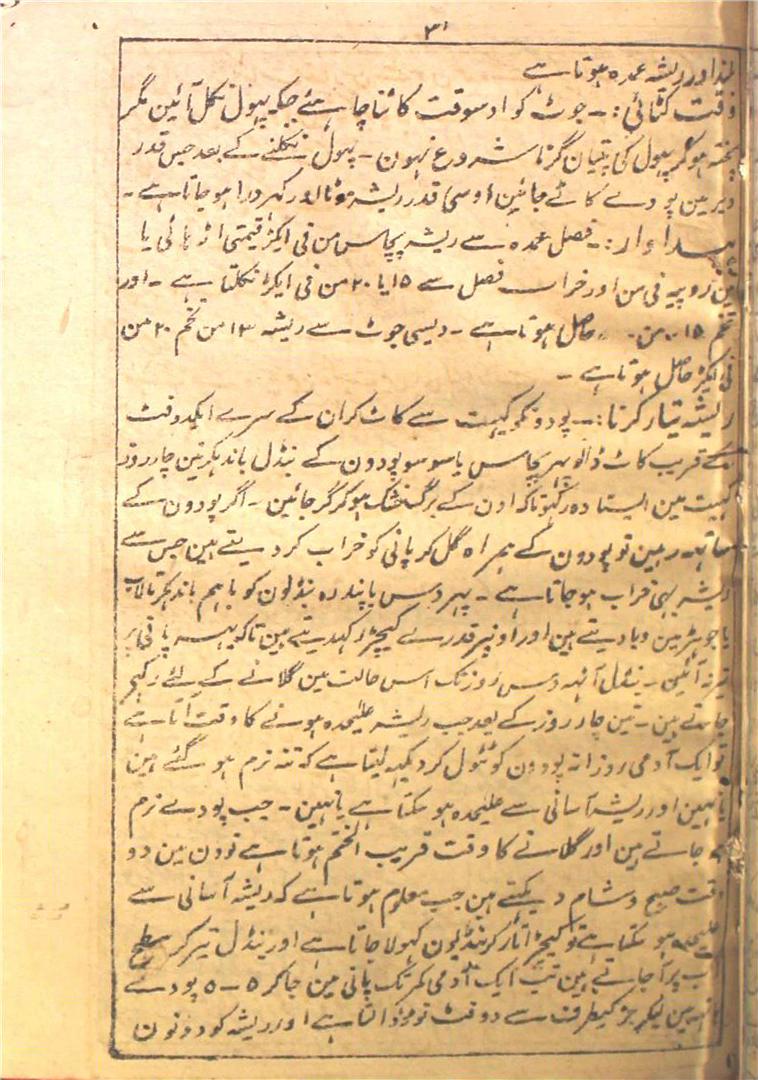 ۳۱
بلند اور ریشہ عمدہ ہوتا ہے
وقت کٹائی :۔ جوٹ کو اوسوقت کاٹنا چاہئے جبکہ پہول نکل آئین مگر
پختہ ہوکر پہول کی پتیان گرنا شروع نہون ۔ پہول نکلنے کے بعد جس قدر
دیر مین پودے کاٹے جائین اوسی قدر ریشہ موٹا اور کہردرا ہوجاتا ہے ۔
پیداوار :۔ فصل عمدہ سے ریشہ پچاس من فی ایکڑ قیمتی اڑہائی یا
تین روپیہ فی من اور خراب فصل سے ۱۵ یا ۲۰ من فی ایکڑ نکلتا ہے ۔ اور
تخم ۱۵ من حاصل ہوتا ہے ۔ دیسی جوٹ سے ریشہ ۱۳ من تخم ۲۰ من
فی ایکڑ حاصل ہوتا ہے ۔
ریشہ تیار کرنا :۔ پودونکو کہیت سے کاٹ کر ان کے سرے ایکدو فٹ
کے قریب کاٹ ڈالو پہر پچاس یا سو سو پودون کے بنڈل باندہکر تین چار روز
کہیت مین ایستادہ رکہو تاکہ اون کے برگ خشک ہوکر گر جائین ۔ اگر پودون کے
ساتہہ رہین تو پودون کے ہمراہ گل کر پانی کو خراب کر دیتے ہین جس سے
ریشہ بہی خراب ہوجاتا ہے ۔ پہر دس یا پندرہ بنڈلون کو باہم باندہکر تالاب
یا جوہڑ مین دبا دیتے ہین اور اونپر قدرے کیچڑ رکہدیتے ہین تاکہ یہہ پانی پر
تیر نہ آئین ۔ بنڈل آٹہہ دس روز تک اس حالت مین گلانے کے لئے رکہے
جاتے ہین ۔ تین چار روز کے بعد جب ریشہ علیحدہ ہونے کا وقت آتا ہے
تو ایک آدمی روزانہ پودون کو ٹٹول کر دیکہہ لیتا ہے کہ تنہ نرم ہو گئے ہین
یا نہین اور ریشہ آسانی سے علیحدہ ہو سکتا ہے یا نہین ۔ جب پودے نرم
ہو جاتے ہین اور گلانے کا وقت قریب الختم ہوتا ہے تو دن مین دو
وقت صبح و شام دیکہتے ہین جب معلوم ہوتا ہے کہ ریشہ آسانی سے
علیحدہ ہو سکتا ہے تو کیچڑ اتار کر بنڈلون کہولا جاتا ہے اور بنڈل تیر کر سطح
آب پر آجاتے ہین تب ایک آدمی کمر تک پانی مین جاکر ۵ - ۵ پودے
ہاتہہ مین لیکر جڑ کیطرف سے دو فٹ توڑ ڈالتا ہے اور ریشہ کو دونون